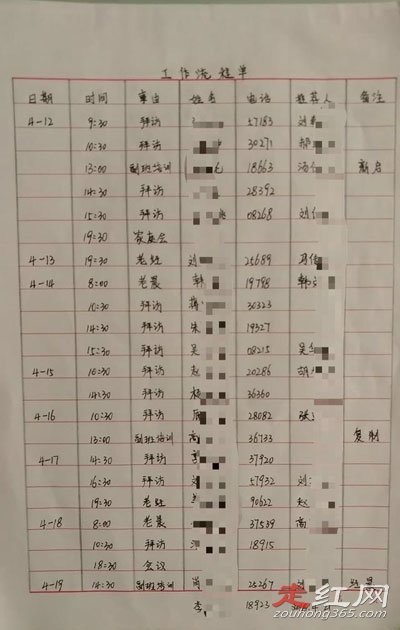 工作流程单
日期 时间 事由 姓名 电话 推荐人 备注
4-12 9:30 拜访 57183 刘
10:30 拜访 30271 郝
13:00 副班培训 18663 汤 新启
14:30 拜访 28392
15:30 拜访 08268 刘
19:30 家庭会
4-13 19:30 老旺 刘 25689
4-14 8:00 老晨 韩 19798 韩
10:30 拜访 蒋 30323
14:30 拜访 朱 19327
15:30 拜访 吴 08215 吴
4-15 10:30 拜访 赵 20286 胡
14:30 拜访 杨 36360
4-16 10:30 拜访 28082 张
13:00 副班培训 高 36733 复制
4-17 14:30 拜访 37920
16:30 拜访 刘 57932 刘
19:30 老旺 90622 赵
4-18 8:00 老晨 37539 高
10:30 拜访 18915
18:30 会议
4-19 14:30 副班培训 肖 25267 刘
李 18923
走红网
zouhong365.com